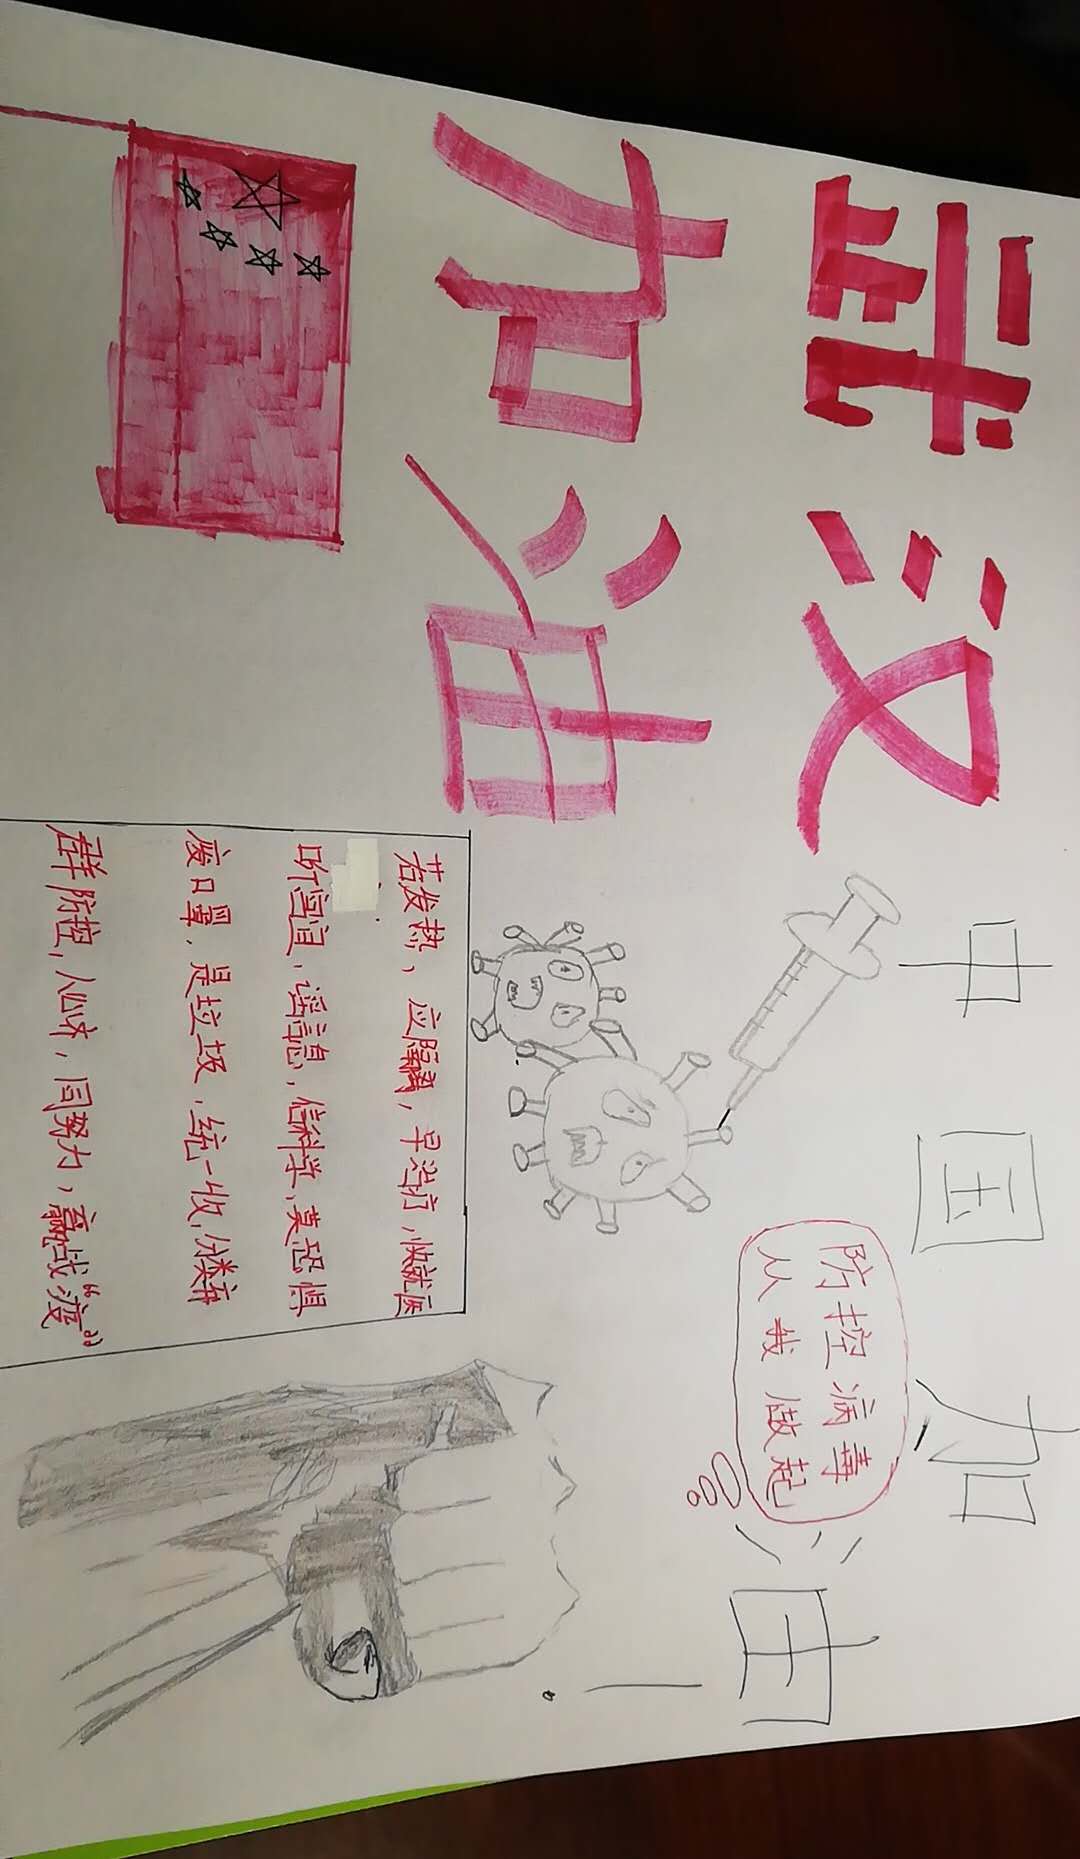 武汉
加油
中国加油！
防控病毒
从我做起
若发热、应隔离，早治疗，快就医
信科学，莫恐惧
废口罩，是垃圾，统一收，分类弃
群防控，人心齐，同努力，赢战“疫”